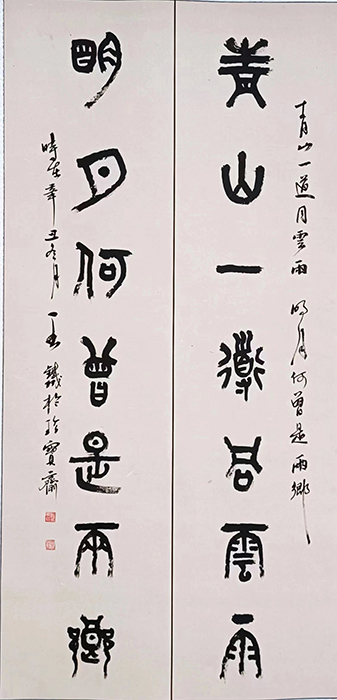 青山一道同雲雨 明月何曾是兩鄉
青山一道同雲雨
明月何曾是兩鄉
時在辛丑冬月 鐵於寶齋